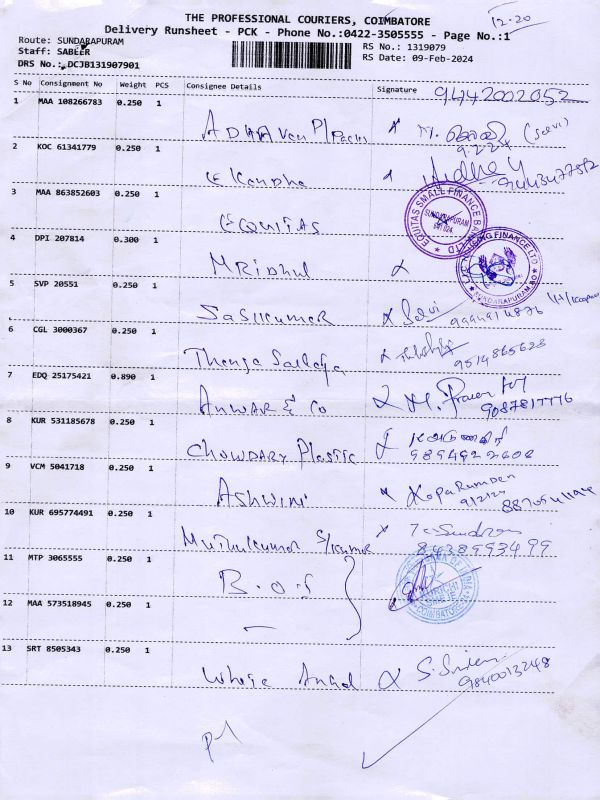 12-20
THE PROFESSIONAL COURIERS, COIMBATORE
Delivery Runsheet - PCK - Phone No.:0422-3505555 - Page No.:1
Route: SUNDARAPURAM
Staff: SABEER
DRS No.: DCJB131907901
RS No.: 1319079
RS Date: 09-Feb-2024
S No Consignment No Weight PCS Consignee Details Signature 9442002052
1 MAA 108266783 0.250 1
(Selvi)
2 KOC 61341779 0.250 1
3 MAA 863852603 0.250 1
EQUITAS
EQUITAS SMALL FINANCE BANK LTD
SUNDARAPURAM
4 DPI 207814 0.300 1
MRIDHUL
HOUSING FINANCE LTD
SUNDARAPURAM BO
5 SVP 20551 0.250 1
Sasikumar Selvi
6 CGL 3000367 0.250 1
Thanga 9514865628
7 EDQ 25175421 0.890 1
ANWAR & Co M. 9087817776
8 KUR 531185678 0.250 1
CHOWDARY Plastic 9894922608
9 VCM 5041718 0.250 1
ASHWINI
10 KUR 695774491 0.250 1
Muthukumar 8438993499
11 MTP 3065555 0.250 1
B.O.I
12 MAA 573518945 0.250 1
13 SRT 8505343 0.250 1
White Angel 9840013248